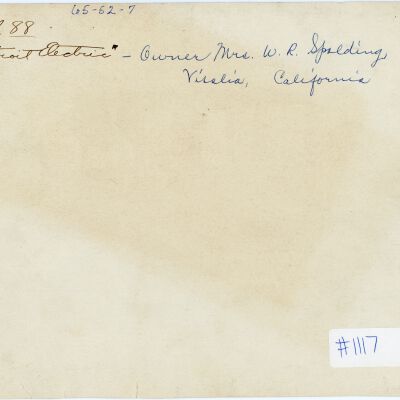 65-62-7
88
Electric" - Owner Mrs. W. R. Spalding,
Visalia, California
#1117